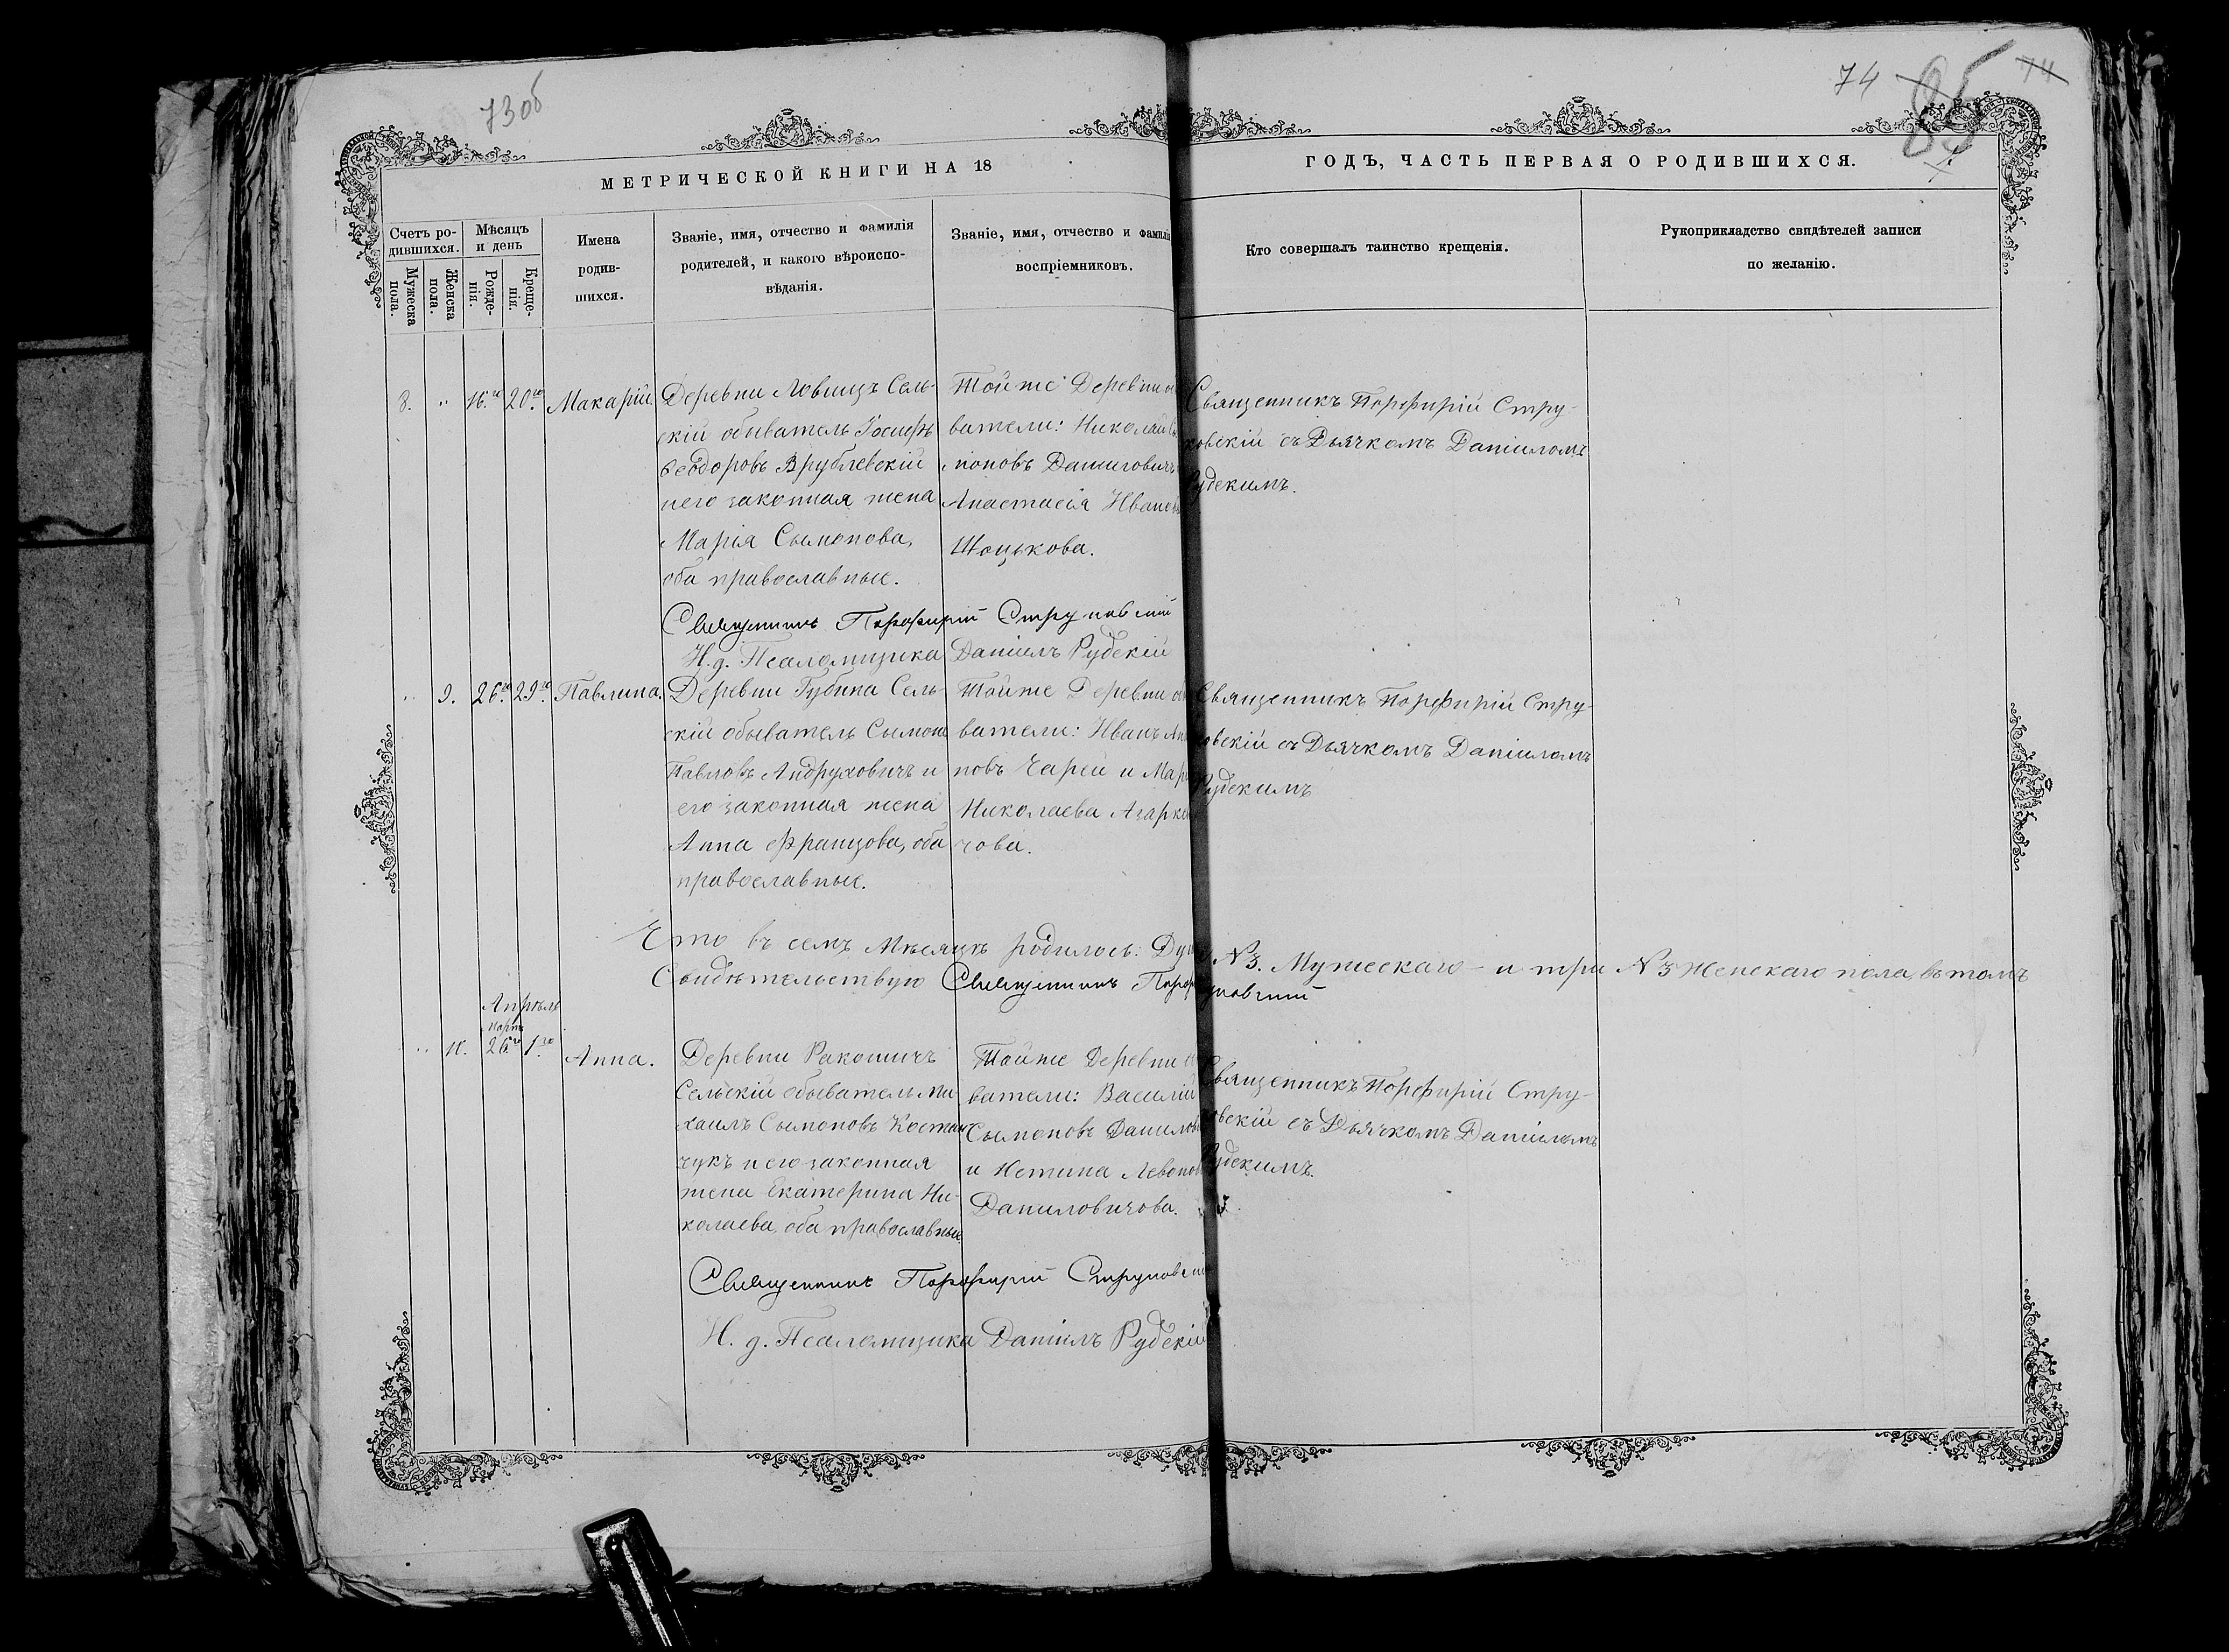 73об
74
85
74
МЕТРИЧЕСКОЙ КНИГИ НА 18
ГОДЪ, ЧАСТЬ ПЕРВАЯ О РОДИВШИХСЯ.
Счетъ ро-
дившихся.
Мужеска
пола.
Женска
пола.
Мѣсяцъ
и день
Рожде-
нія.
Креще-
нія.
Имена
родив-
шихся.
Званіе, имя, отчество и фамилія
родителей, и какого вѣроиспо-
вѣданія.
Званіе, имя, отчество и фамилія
воспріемниковъ.
Кто совершалъ таинство крещенія.
Рукоприкладство свидѣтелей записи
по желанію.
8. " 16.го 20.го Макарій.
Деревни Ловищъ Сель-
скій обыватель Іосифъ
Ѳеодоровъ Врублевскій
и его законная жена
Марія Сымонова,
оба православные.
Тойже Деревни
ватели: Николай
моновъ Даниловичъ
Анастасія
Шоцькова.
Священникъ Порфирій Стру-
ковскій съ Дьячкомъ Даніиломъ
Рудскимъ.
Священникъ Порфирій Струковскій
И. д. Псаломщика Даніилъ Рудскій
" 9. 26.го 29.го Павлина.
Деревни Губина Сель-
скій обыватель Сымонъ
Павловъ Андруховичъ и
его законная жена
Анна Францова, оба
православные.
Тойже Деревни
ватели: Иванъ
новъ Царей и
Николаева
чова.
Священникъ Порфирій Стру-
ковскій съ Дьячкомъ Даніиломъ
Рудскимъ
Что въ семъ Мѣсяцѣ родилось: №3. Мужескаго - и три №3 Женскаго пола, въ томъ
Свидѣтельствую Священникъ Порфирій Струковскій
Апрѣль
Марта
" 10. 26.го 1.го Анна.
Деревни Ракошичъ
Сельскій обыватель Ми-
хаилъ Сымоновъ Костан-
чукъ и его законная
жена Екатерина Ни-
колаева, оба православные.
Тойже Деревни
ватели: Василій
Сымоновъ
и
Даниловичова.
Священникъ Порфирій Стру-
ковскій съ Дьячкомъ Даніиломъ
Рудскимъ.
Священникъ Порфирій Струковскій
И. д. Псаломщика Даніилъ Рудскій